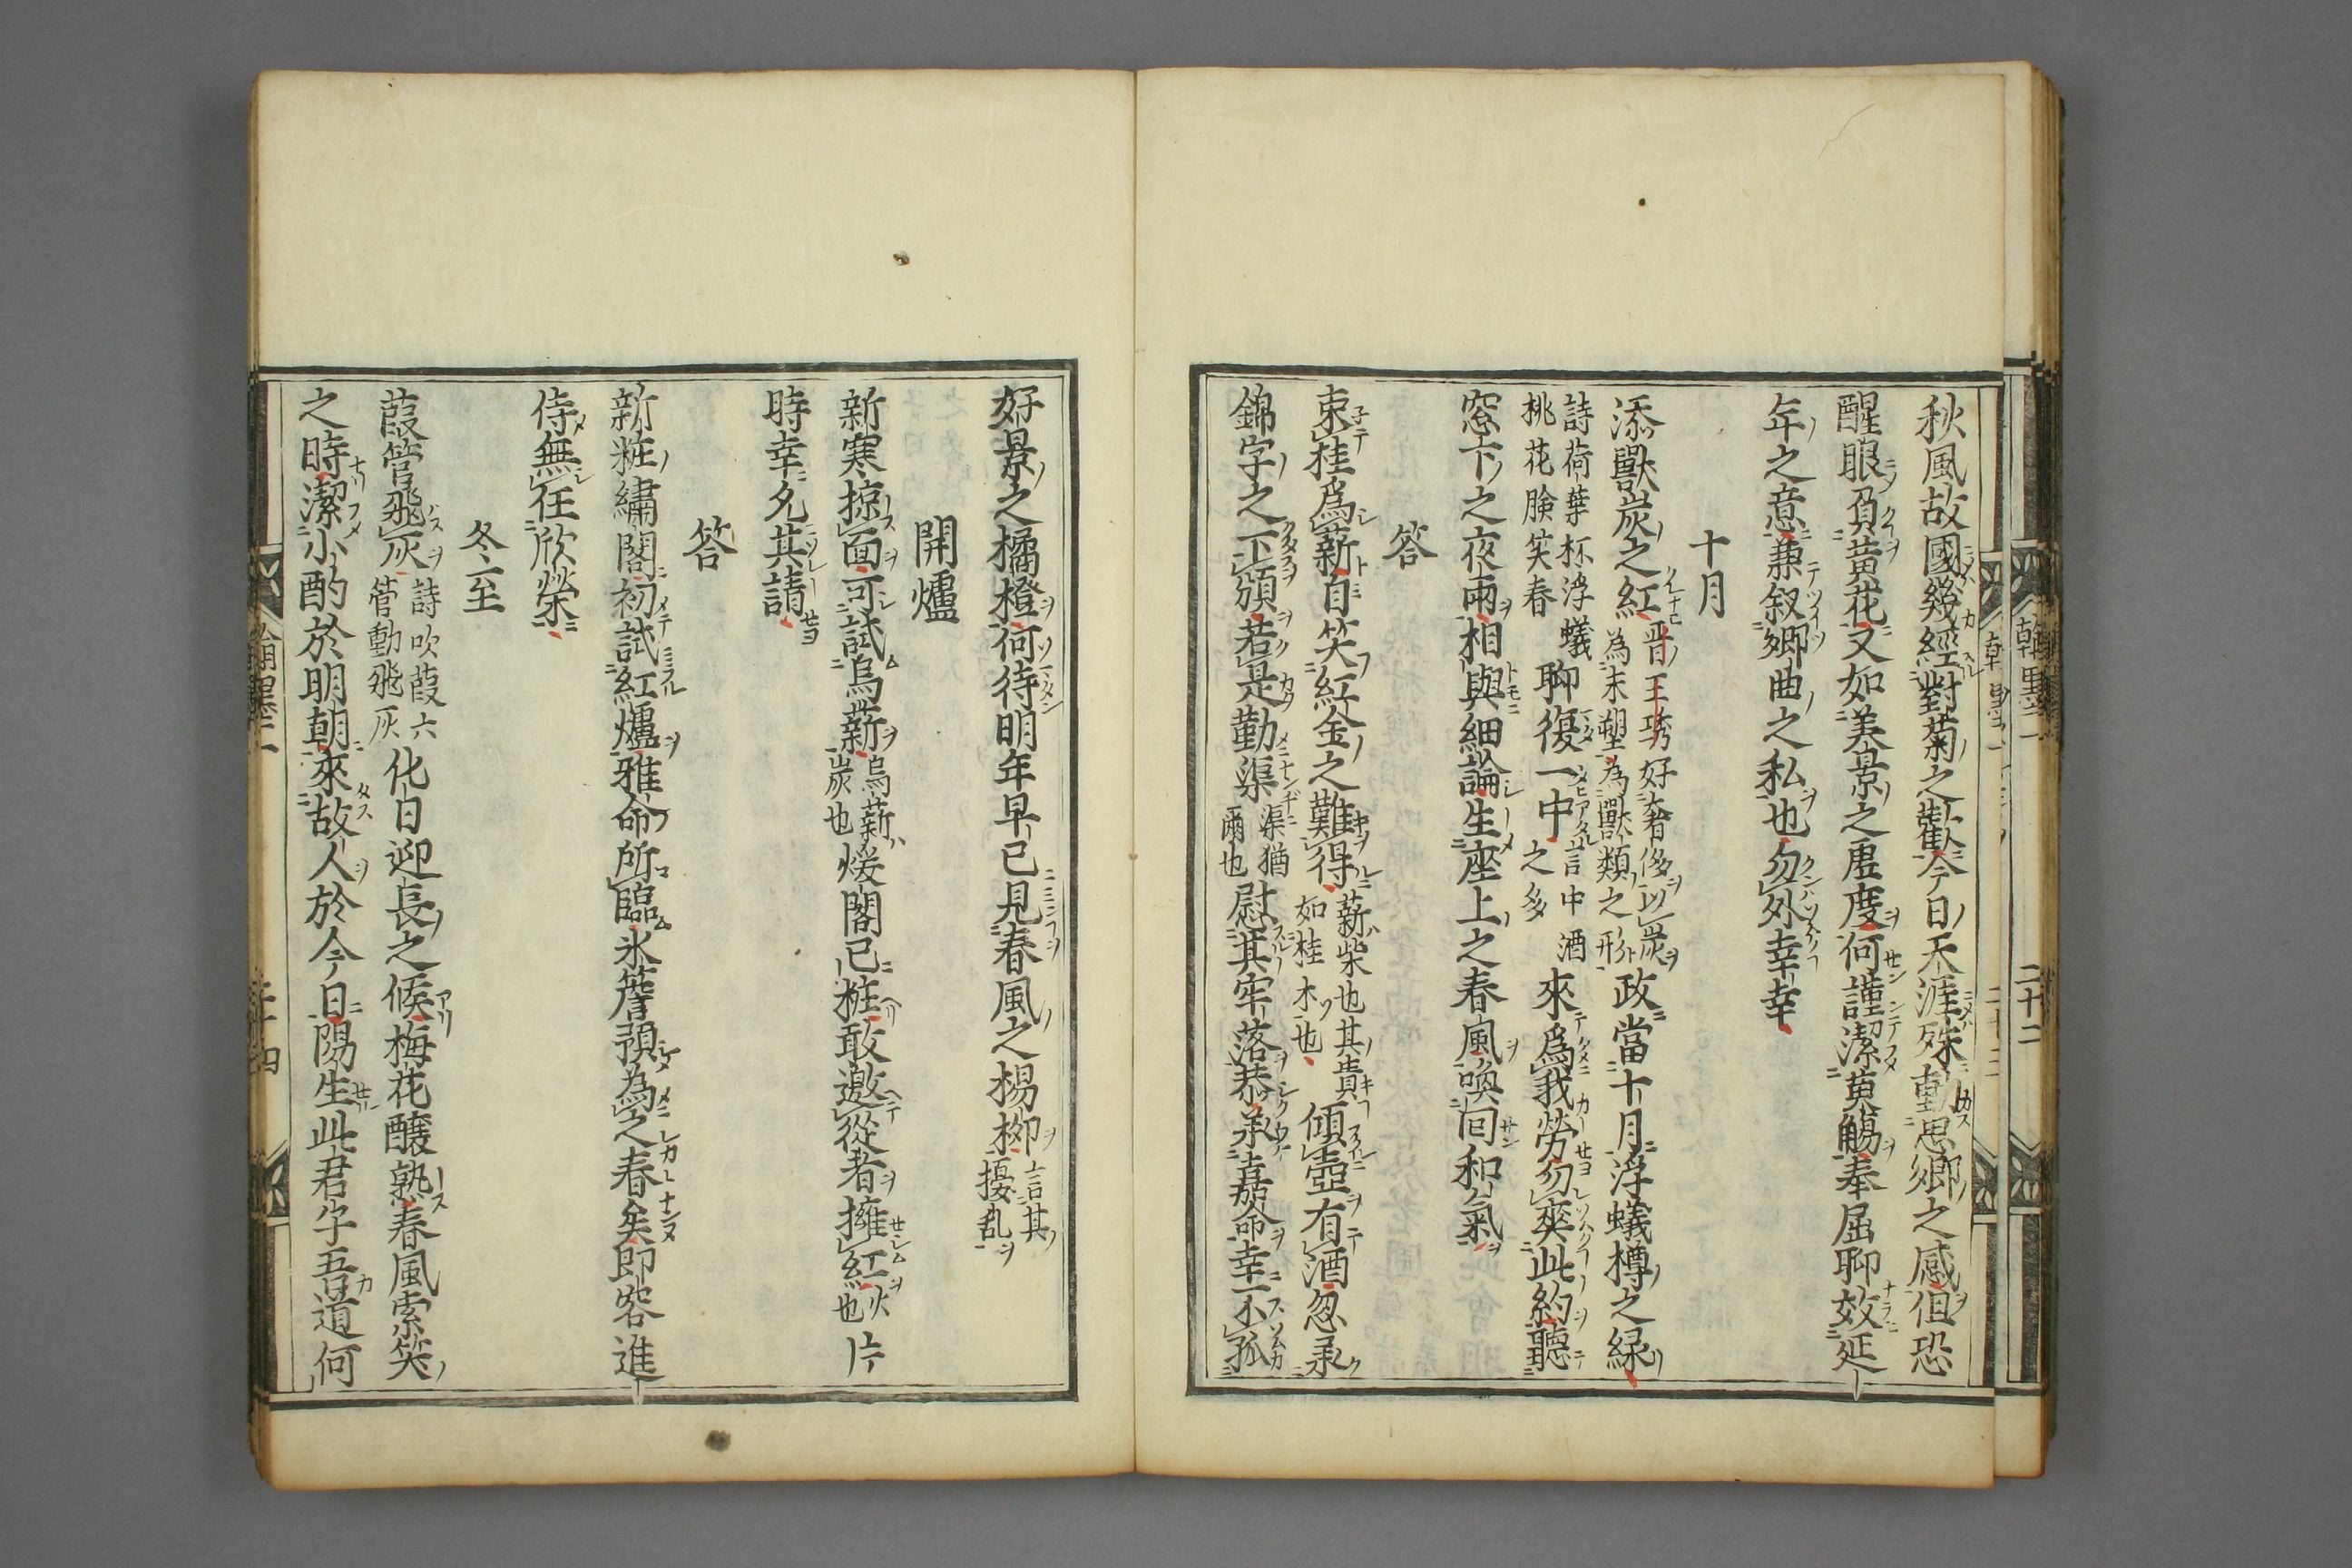 秋風故國幾經對菊之歡今日天涯殊動思鄉之感但恐
醒眼負黄花又如美景之虚度何謹潔萸觴奉屈聊效延
年之意兼叙鄉曲之私也勿外幸幸
十月
添獸炭之紅 晋王琇好奢侈以炭為末塑為獸類之形 政當十月浮蟻樽之緑
詩荷葉杯浮蟻桃花臉笑春 聊復一中 言中酒之多 來爲我勞勿爽此約聽
窓下之夜雨相與細論生座上之春風喚囘和氣
答
束桂爲薪自笑紅金之難得 薪柴也其貴如桂木也 傾壺有酒忽承
錦字之下頒若是勤渠 渠猶爾也 慰其牢落恭承嘉命幸不孤
好景之橘橙何待明年早已見春風之楊柳 言其擾乱
開爐
新寒掠面可試烏薪 烏薪炭也 煖閣已粧敢邀從者擁紅 火也 片
時幸允其請
答
新粧繡閣初試紅爐雅命所臨氷簷預為之春矣即容進
侍無任欣榮
冬至
葭管飛灰 詩吹葭六管動飛灰 化日迎長之候梅花釀熟春風索笑
之時潔小酌於明朝來故人於今日陽生此君子吾道何
翰墨二
二十四
翰墨二
二十二